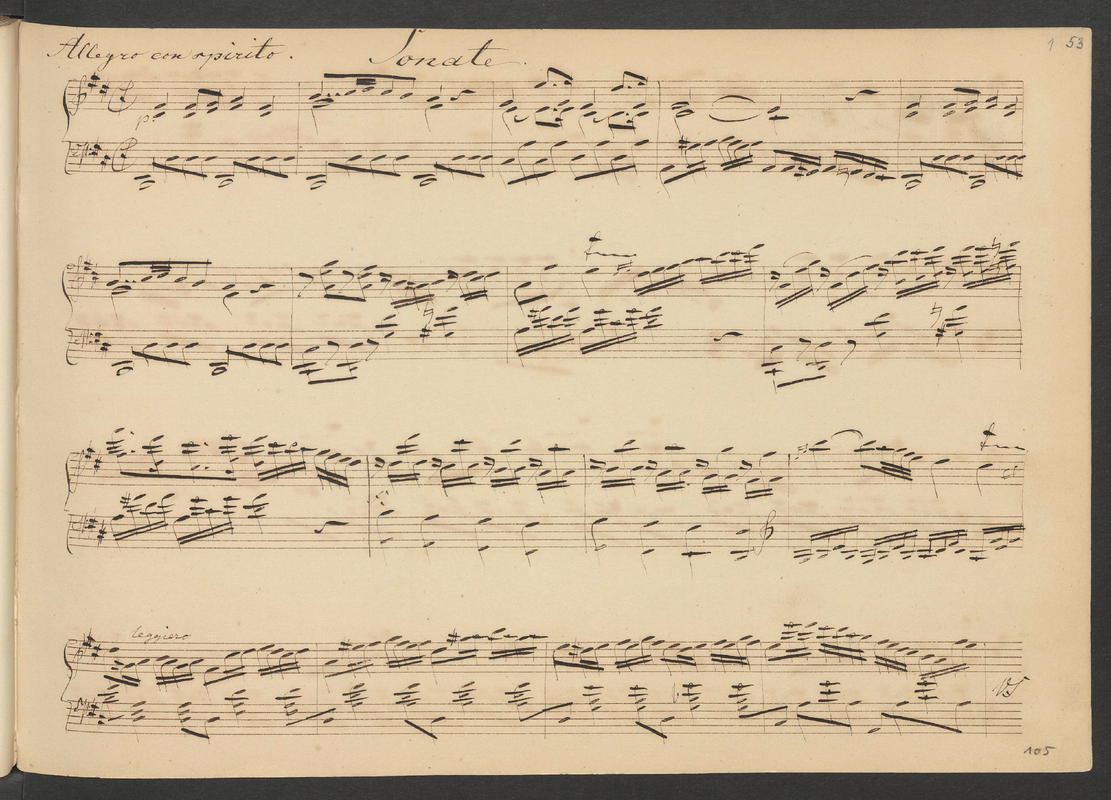 Allegro con spirito. Sonate.
1 53
p.
leggiero
VS
105